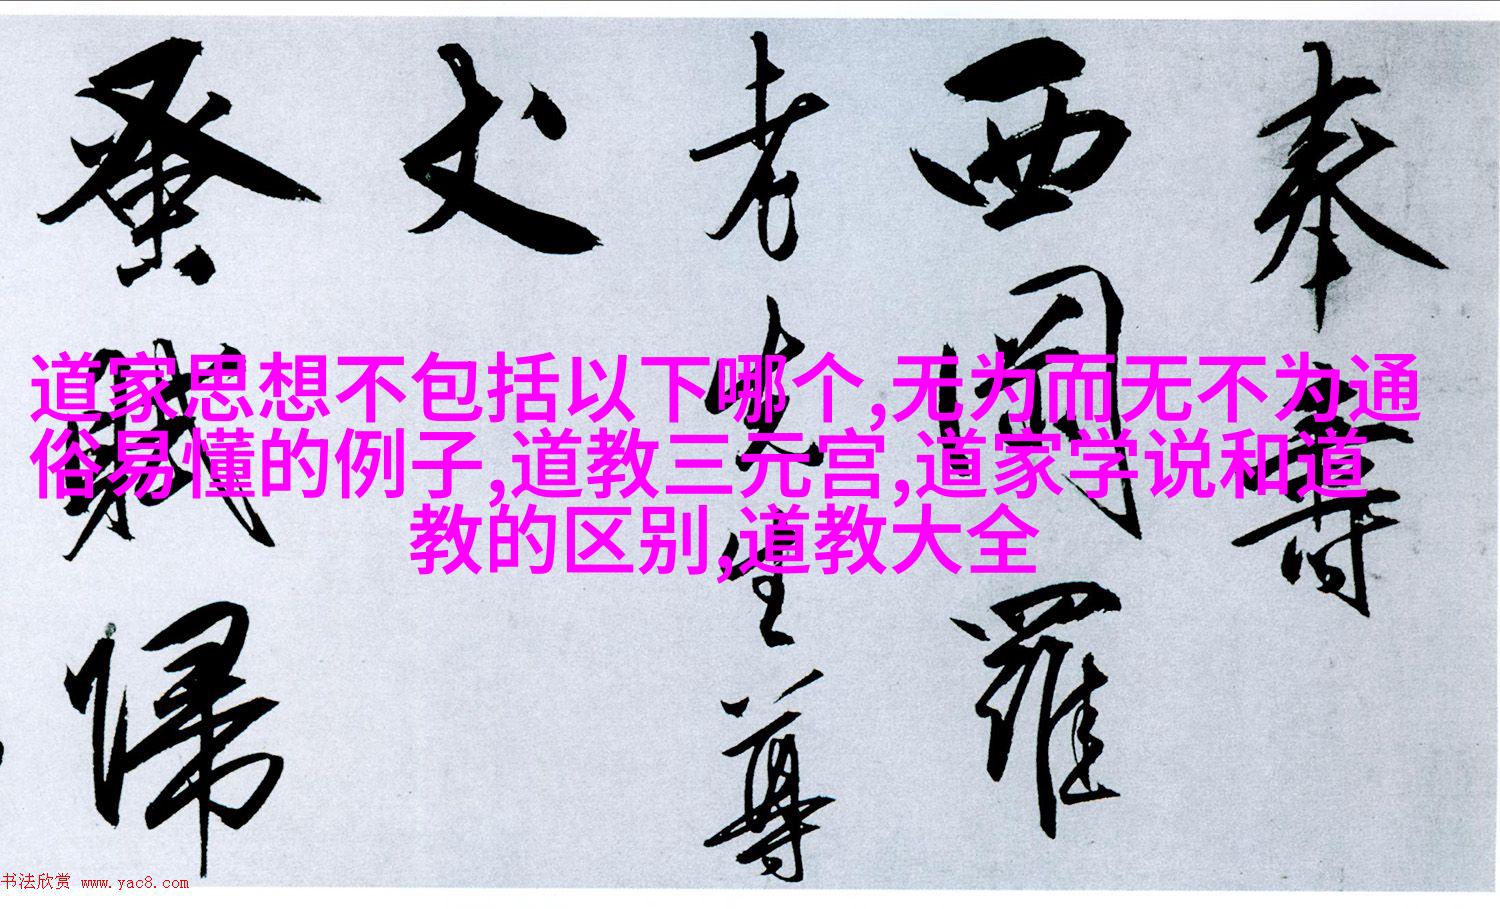 道家思想不包括以下哪个,无为而无不为通
俗易懂的例子,道教三元宫,道家学说和道
教的区别,道教大全
奉壽
西羅
老先生尊
丈
蚤賦歸
书法欣赏 www.yac8.com